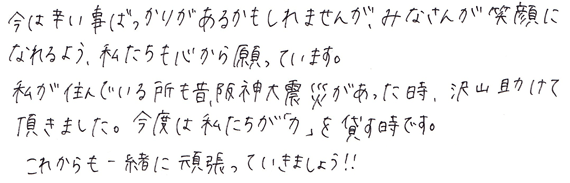 今は辛い事ばっかりがあるかもしれませんが、みなさんが笑顔に
なれるよう、私たちも心から願っています。
私が住んでいる所も昔、阪神大震災があった時、沢山助けて
頂きました。今度は私たちが「力」を貸す時です。
これからも一緒に頑張っていきましょう!!